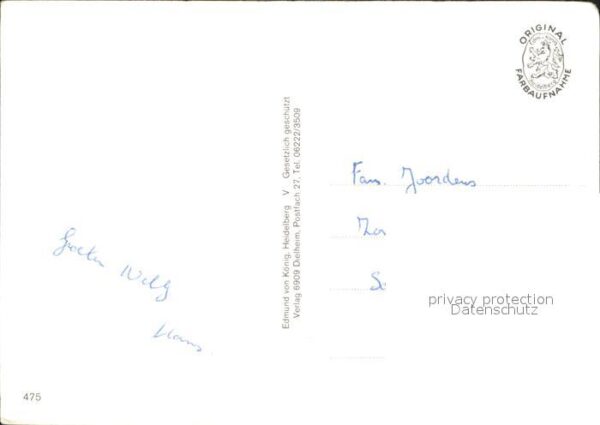 ORIGINAL
FARBAUFNAHME
Fam. Joordens
Zo
S
privacy protection
Datenschutz
Groeten Willy
Hans
Edmund von König, Heidelberg V Gesetzlich geschützt
Verlag 6909 Dielheim, Postfach 27, Tel. 06222/3509
475